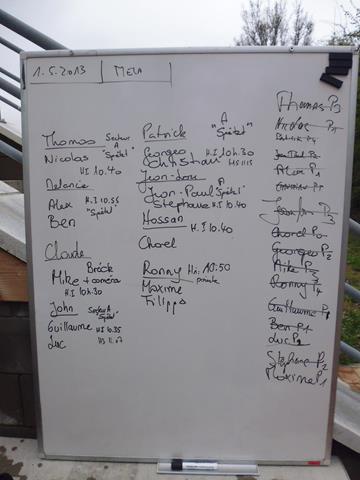 1.5.2013 MELA
Thomas Secteur A "Spätel"
Nicolas HI 10.40
Melanie
Alex H.I 10.55 "Spätel"
Ben
Claude
Brück
Mike + caméra
H.I 10h.30
John Secteur A "Spätel"
Guillaume HI 10.35
Luc HS 11.07
Patrick A "Spätel"
Georges H.I 10h.30
Christian HS 1115
Jean-Lou
Jean-Paul A "Spätel"
Stephane H.I 10.40
Hossan
H.I 10.40
Chorel
Ronny Hi: 10:50
Maxime
Filippo
Thomas P3
Nicolas P1
Patrick P4
Jean Paul P2
Alex P1
Christian P2
Chorel Po
Georges P2
Mike P3
Ronny P4
Guillaume P1
Ben P1
Luc P2
Stephane P2
Maxime P1